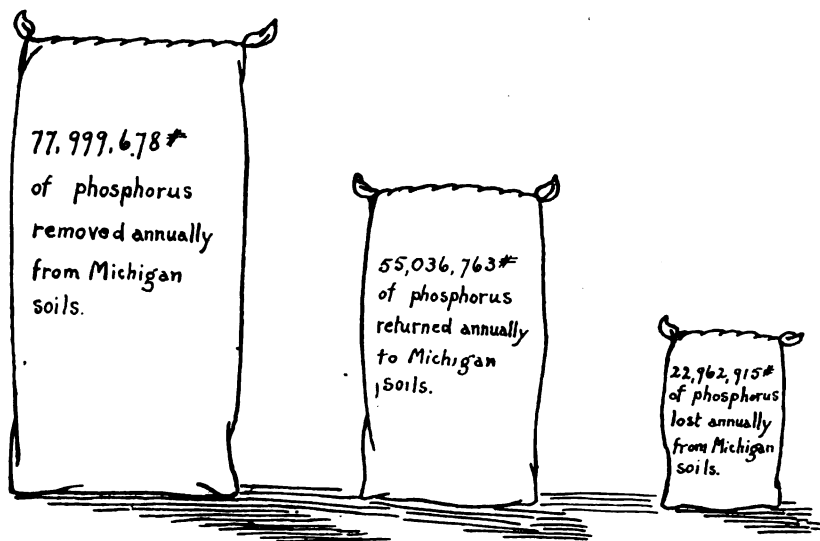 77,999,678#
of phosphorus
removed annually
from Michigan
soils.
55,036,763#
of phosphorus
returned annually
to Michigan
soils.
22,962,915#
of phosphorus
lost annually
from Michigan
soils.